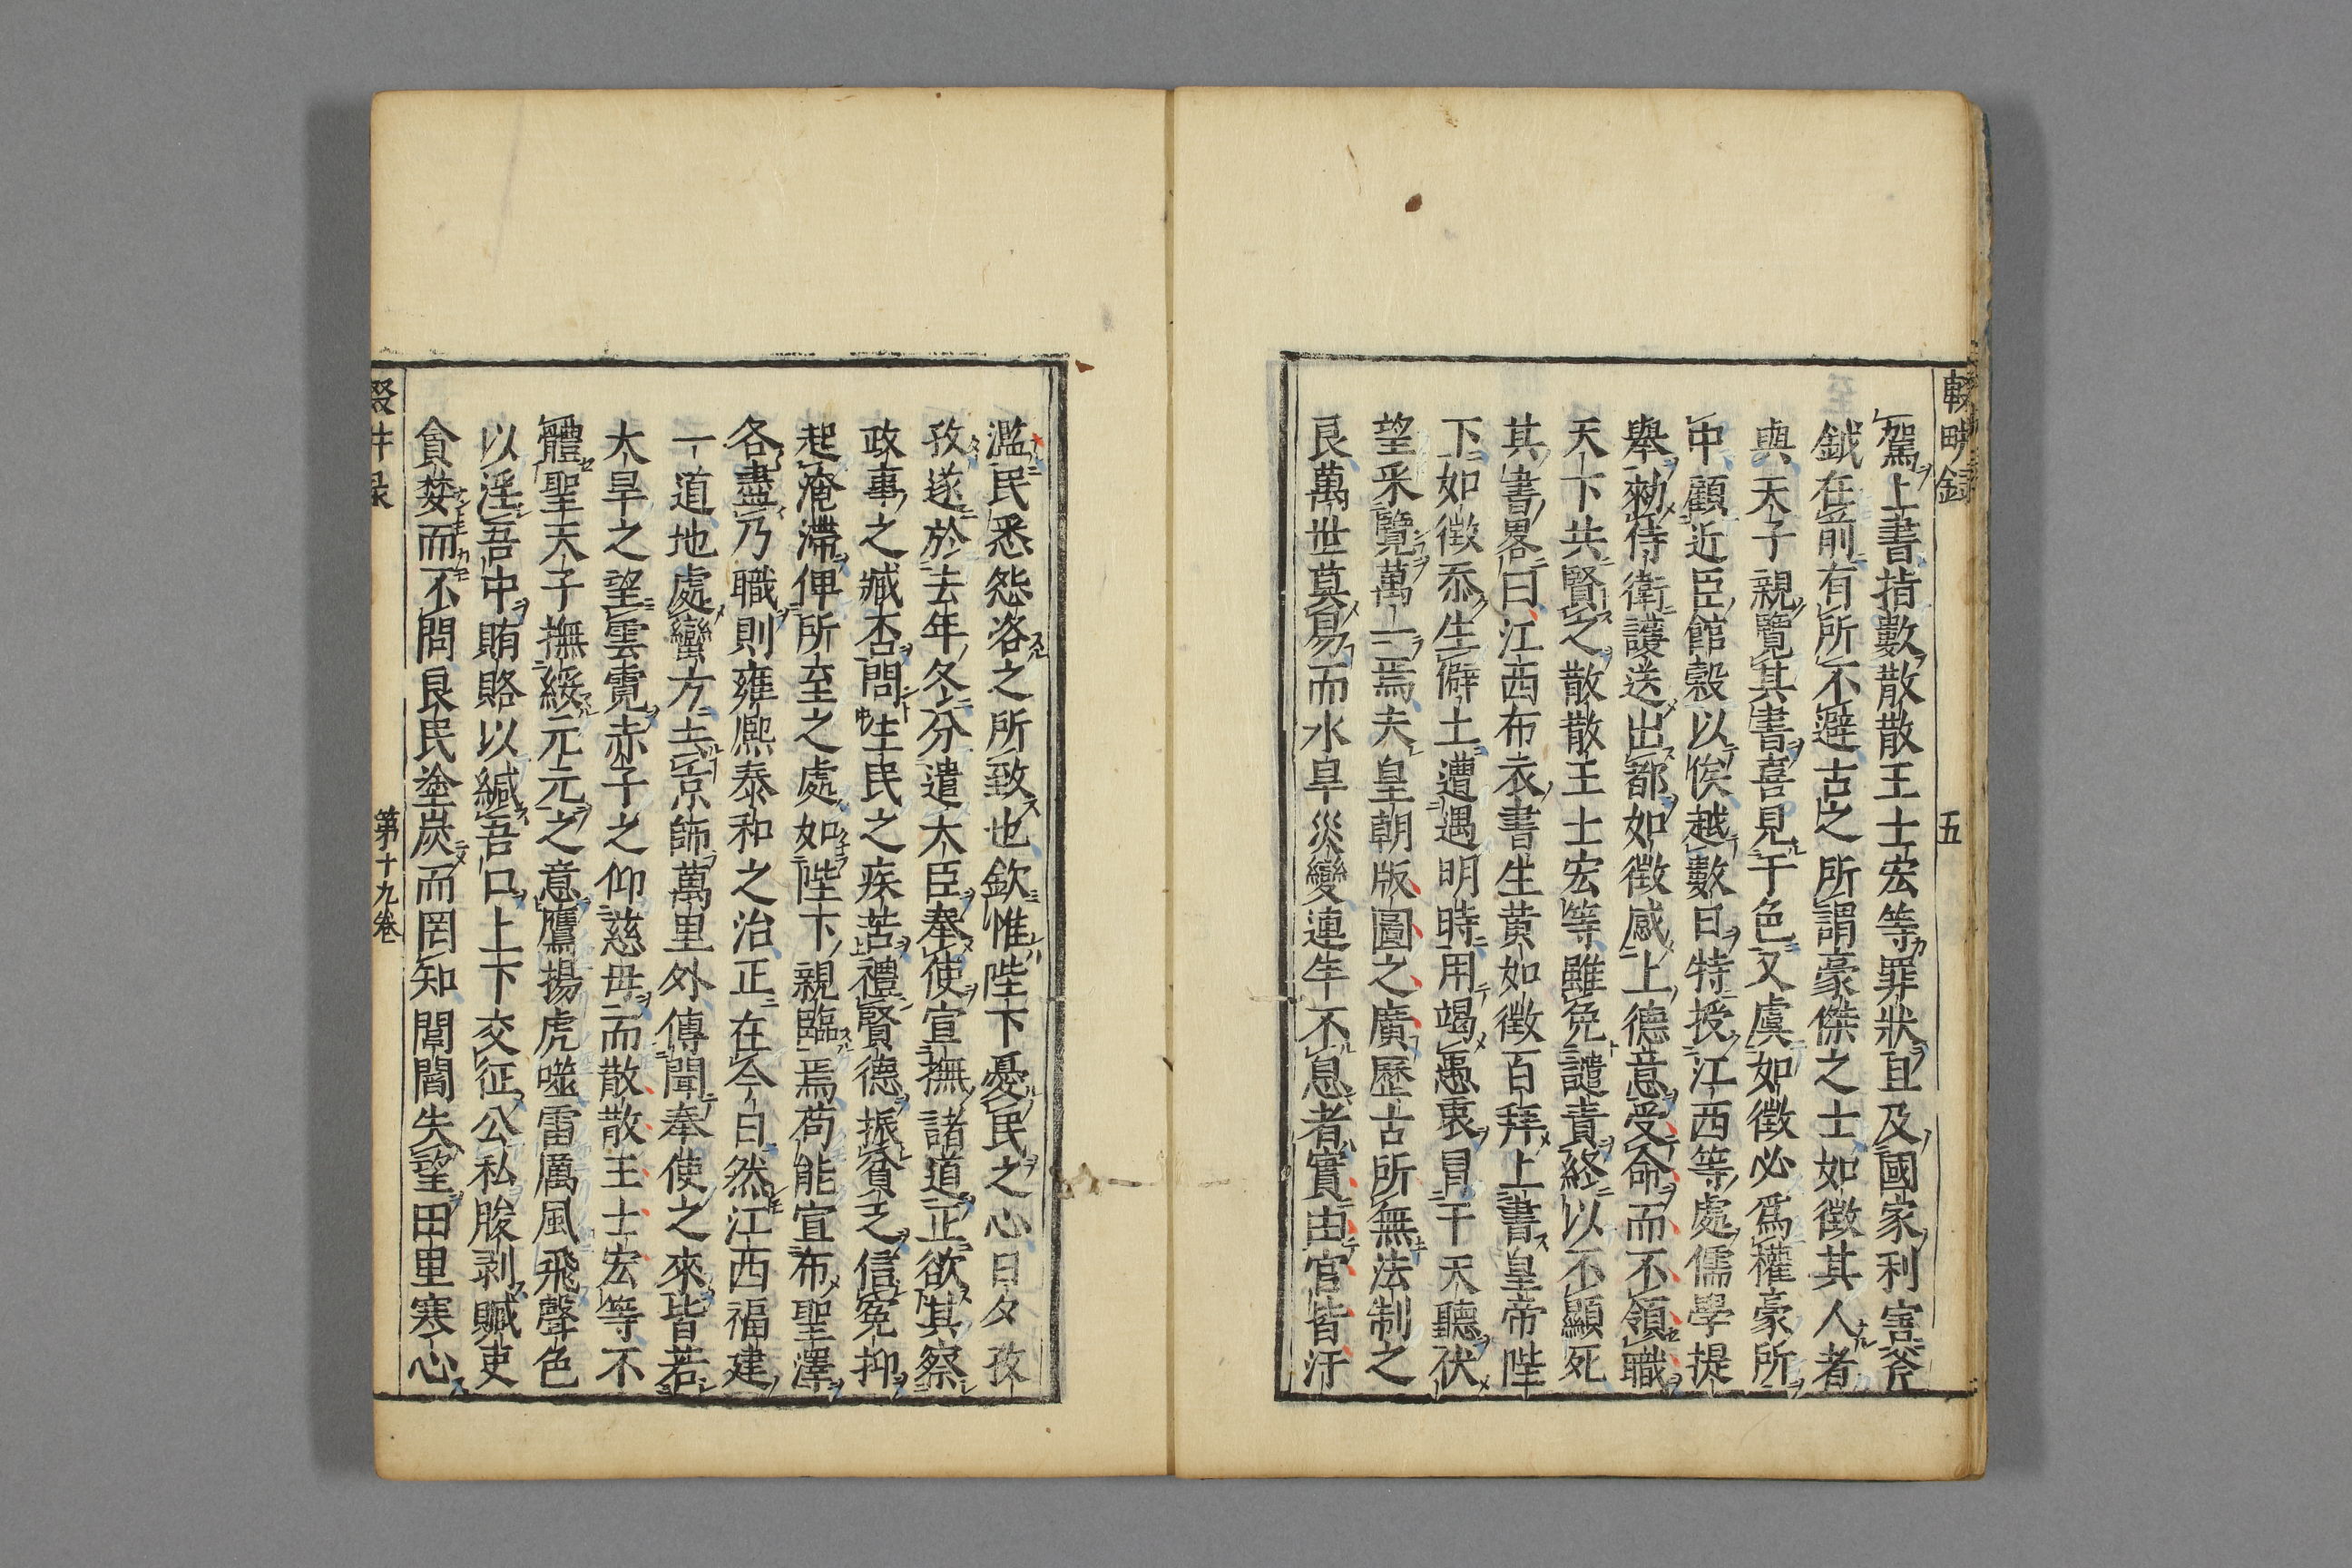 輟畊録
五
駕上書指數散散王士宏等罪狀且及國家利害斧
鉞在前有所不避古之所謂豪傑之士如徴其人者
與天子親覽其書喜見于色又虞如徴必爲權豪所
中顧近臣館穀以俟越數日特授江西等處儒學提
舉勑侍衛護送出都如徴感上德意受命而不領職
天下共賢之散散王士宏等雖免譴責終以不顯死
其書畧曰江西布衣書生黄如徴百拜上書皇帝陛
下如徴忝生僻土遭遇明時用竭愚衷冒干天聽伏
望采覽萬一焉夫皇朝版圖之廣歷古所無法制之
良萬世莫易而水旱災變連年不息者實由官皆汙
濫民悉怨咨之所致也欽惟陛下憂民之心日夕孜
孜遂於去年冬分遣大臣奉使宣撫諸道正欲其察
政事之臧否問生民之疾苦禮賢德振貧乏信冤抑
起淹滯俾所至之處如陛下親臨焉苟能宣布聖澤
各盡乃職則雍熙泰和之治正在今日然江西福建
一道地處蠻方去京師萬里外傳聞奉使之來皆若
大旱之望雲霓赤子之仰慈母而散散王士宏等不
體聖天子撫綏元元之意鷹揚虎噬雷厲風飛聲色
以淫吾中賄賂以緘吾口上下交征公私朘剥贓吏
貪婪而不問良民塗炭而罔知閭閻失望田里寒心
第十九卷